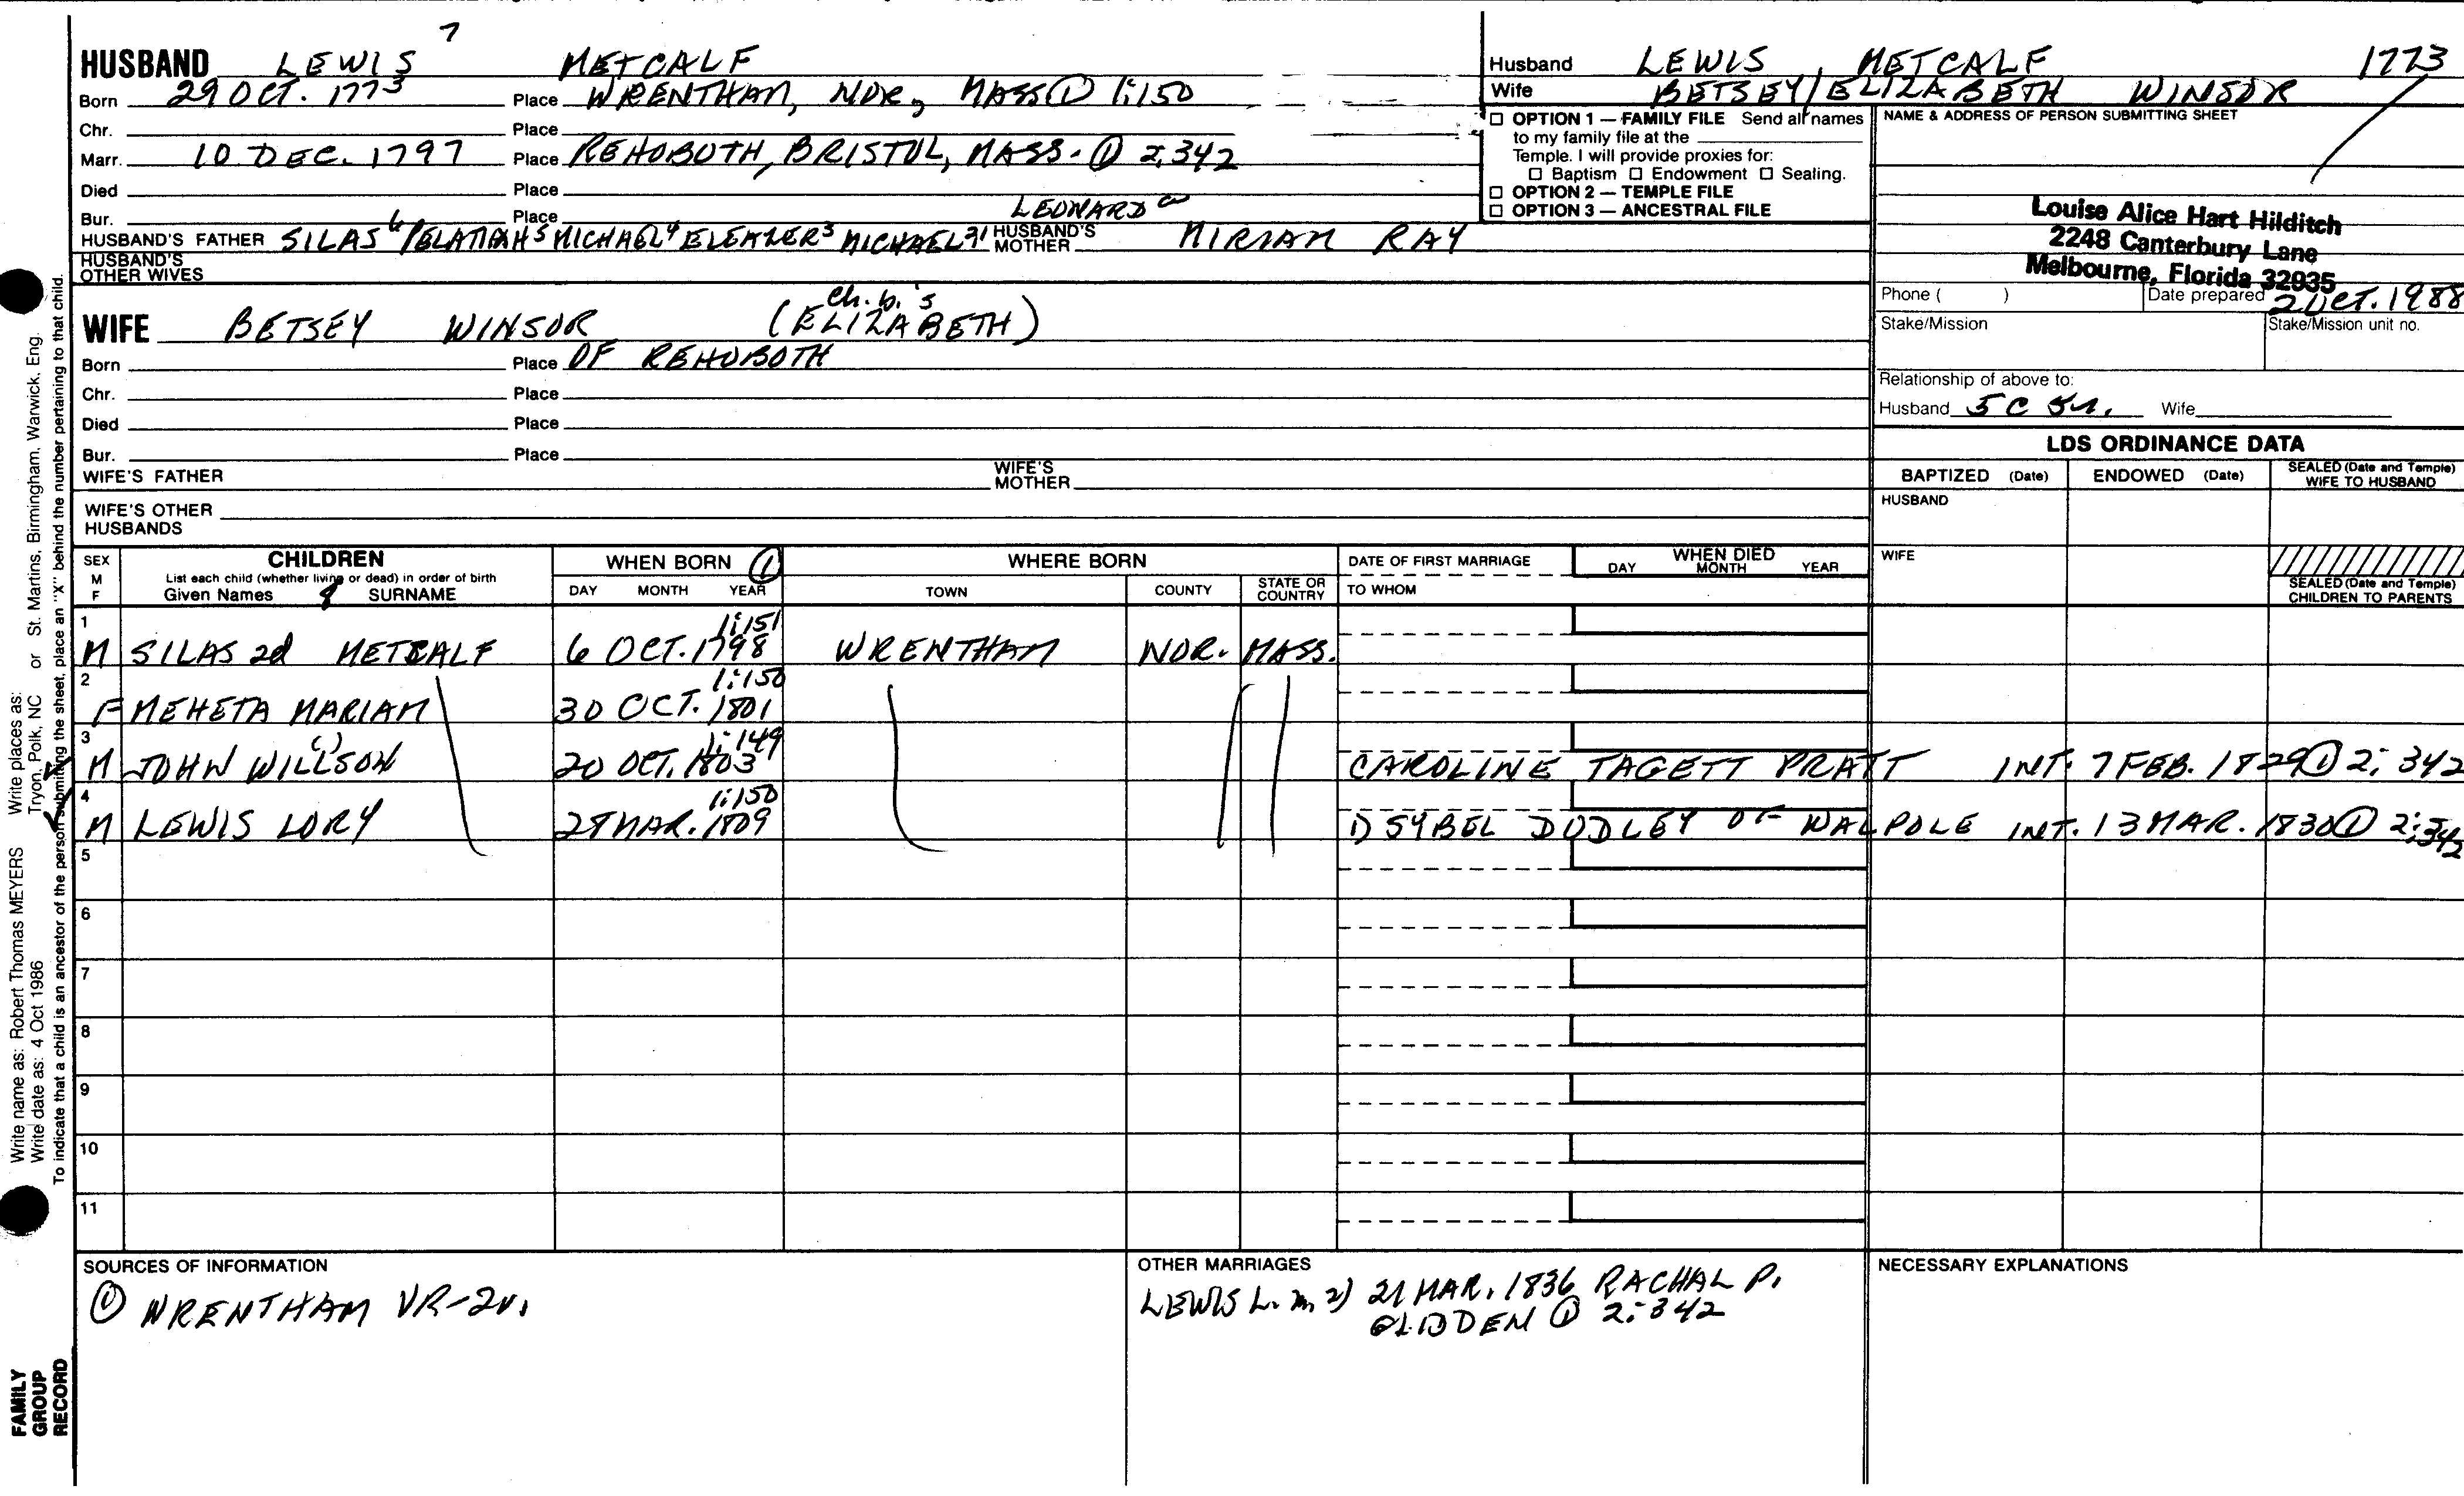 7
HUSBAND LEWIS METCALF
Born 29 OCT. 1773 Place WRENTHAM, NOR, MASS ① 1:150
Chr. Place
Marr. 10 DEC. 1797 Place REHOBOTH, BRISTOL, MASS. ① 2:342
Died Place
Bur. Place
LEONARD
HUSBAND'S FATHER SILAS 6 PELATIAH 5 MICHAEL 4 ELEAZER 3 MICHAEL 21 HUSBAND'S MOTHER MIRIAM RAY
HUSBAND'S OTHER WIVES
Ch. b.'s
WIFE BETSEY WINSOR (ELIZABETH)
Born Place OF REHOBOTH
Chr. Place
Died Place
Bur. Place
WIFE'S FATHER WIFE'S MOTHER
WIFE'S OTHER HUSBANDS
Husband LEWIS METCALF 1773
Wife BETSEY/ELIZABETH WINSOR
☐ OPTION 1 — FAMILY FILE Send all names
to my family file at the
Temple. I will provide proxies for:
☐ Baptism ☐ Endowment ☐ Sealing.
☐ OPTION 2 — TEMPLE FILE
☐ OPTION 3 — ANCESTRAL FILE
NAME & ADDRESS OF PERSON SUBMITTING SHEET
Louise Alice Hart Hilditch
2248 Canterbury Lane
Melbourne, Florida 32935
Phone ( ) Date prepared 2 OCT. 1988
Stake/Mission Stake/Mission unit no.
Relationship of above to:
Husband 5 C 5r. Wife
LDS ORDINANCE DATA
BAPTIZED (Date) ENDOWED (Date) SEALED (Date and Temple) WIFE TO HUSBAND
HUSBAND
WIFE
SEALED (Date and Temple) CHILDREN TO PARENTS
SEX M F CHILDREN WHEN BORN ① WHERE BORN DATE OF FIRST MARRIAGE WHEN DIED
List each child (whether living or dead) in order of birth
Given Names 8 SURNAME DAY MONTH YEAR TOWN COUNTY STATE OR COUNTRY TO WHOM DAY MONTH YEAR
1 M SILAS 2d METCALF 6 OCT. 1798 1:151 WRENTHAM NOR. MASS.
2 F MEHETA MARIAM 30 OCT. 1801 1:150
3 M JOHN WILLSON 20 OCT. 1803 1:149 CAROLINE TAGETT PRATT INT. 7 FEB. 1829 ① 2:342
4 M LEWIS LORY 28 MAR. 1809 1:150 1) SYBEL DUDLEY OF WALPOLE INT. 13 MAR. 1830 ① 2:342
5
6
7
8
9
10
11
SOURCES OF INFORMATION
① WRENTHAM VR-2v.
OTHER MARRIAGES
LEWIS L. m. 2) 21 MAR. 1836 RACHAL P.
GLIDDEN ① 2:342
NECESSARY EXPLANATIONS
Write name as: Robert Thomas MEYERS Write places as: Tryon, Polk, NC or St. Martins, Birmingham, Warwick, Eng.
Write date as: 4 Oct 1986
To indicate that a child is an ancestor of the person submitting the sheet, place an "X" behind the number pertaining to that child.
FAMILY
GROUP
RECORD